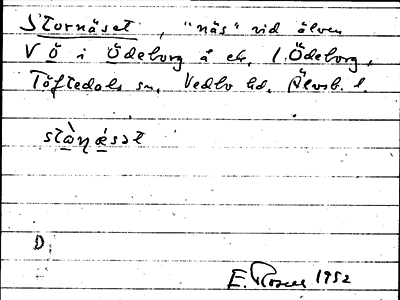 Stornäset, "näs" vid älven
V Ö i Ödeborg å ek. l. Ödeborg,
Töftedals sn, Vedbo hd. Älvsb. l.
stànǽsət
D;
E. 1952